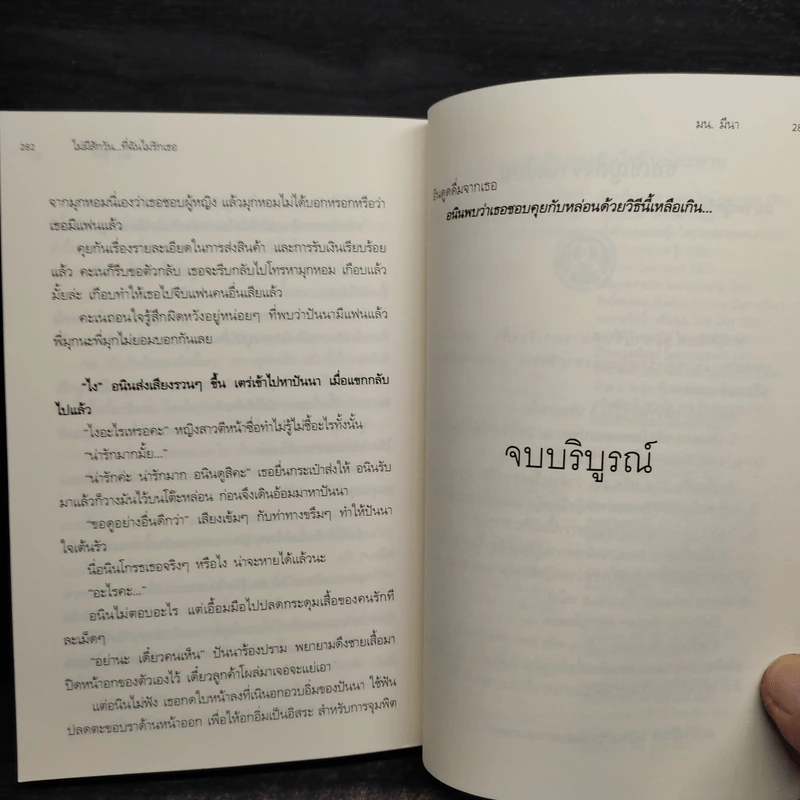 282 ไม่มีสักวัน...ที่ฉันไม่รักเธอ
จากมุกหอมนี่เองว่าเธอชอบผู้หญิง แล้วมุกหอมไม่ได้บอกหรอกหรือว่า
เธอมีแฟนแล้ว
คุยกันเรื่องรายละเอียดในการส่งสินค้า และการรับเงินเรียบร้อย
แล้ว คะเนก็รีบขอตัวกลับ เธอจะรีบกลับไปโทรหามุกหอม เกือบแล้ว
มั้ยล่ะ เกือบทำให้เธอไปจีบแฟนคนอื่นเสียแล้ว
คะเนถอนใจรู้สึกผิดหวังอยู่หน่อยๆ ที่พบว่าปันนามีแฟนแล้ว
พี่มุกนะพี่มุกไม่ยอมบอกกันเลย
"ไง" อนินส่งเสียงรวนๆ ขึ้น เตร่เข้าไปหาปันนา เมื่อแขกกลับ
ไปแล้ว
"ไงอะไรเหรอคะ" หญิงสาวตีหน้าซื่อทำไม่รู้ไม่ชี้อะไรทั้งนั้น
"น่ารักมากมั้ย..."
"น่ารักค่ะ น่ารักมาก อนินดูสิคะ" เธอยื่นกระเป๋าส่งให้ อนินรับ
มาแล้วก็วางมันไว้บนโต๊ะหล่อน ก่อนจึงเดินอ้อมมาหาปันนา
"ขอดูอย่างอื่นดีกว่า" เสียงเข้มๆ กับท่าทางขรึมๆ ทำให้ปันนา
ใจเต้นรัว
นี่อนินโกรธเธอจริงๆ หรือไง น่าจะหายได้แล้วนะ
"อะไรคะ..."
อนินไม่ตอบอะไร แต่เอื้อมมือไปปลดกระดุมเสื้อของคนรักที
ละเม็ดๆ
"อย่านะ เดี๋ยวคนเห็น" ปันนาร้องปราม พยายามดึงชายเสื้อมา
ปิดหน้าอกของตัวเองไว้ เดี๋ยวลูกค้าโผล่มาเจอจะแย่เอา
แต่อนินไม่ฟัง เธอกดใบหน้าลงที่เนินอกอวบอิ่มของปันนา ใช้ฟัน
ปลดตะขอบราด้านหน้าออก เพื่อให้อกอิ่มเป็นอิสระ สำหรับการจุมพิต
มน. มีนา
ดูดดื่มจากเธอ
อนินพบว่าเธอชอบคุยกับหล่อนด้วยวิธีนี้เหลือเกิน...
จบบริบูรณ์